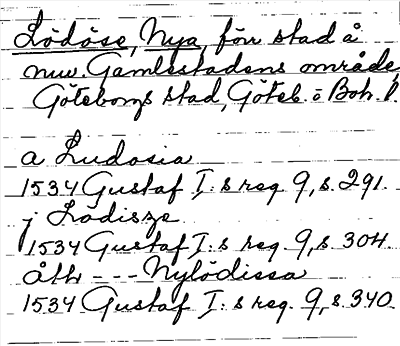 Lödöse, Nya, förr stad å
nuv. Gamlestadens område,
Göteborgs stad, Göteb. o Boh. l.
a Ludosia
1534 Gustaf I:s reg. 9, s. 291.
j Lödisze
1534 Gustaf I:s reg. 9, s. 304.
åth --- Nylödissa
1534 Gustaf I:s reg. 9, s. 340.